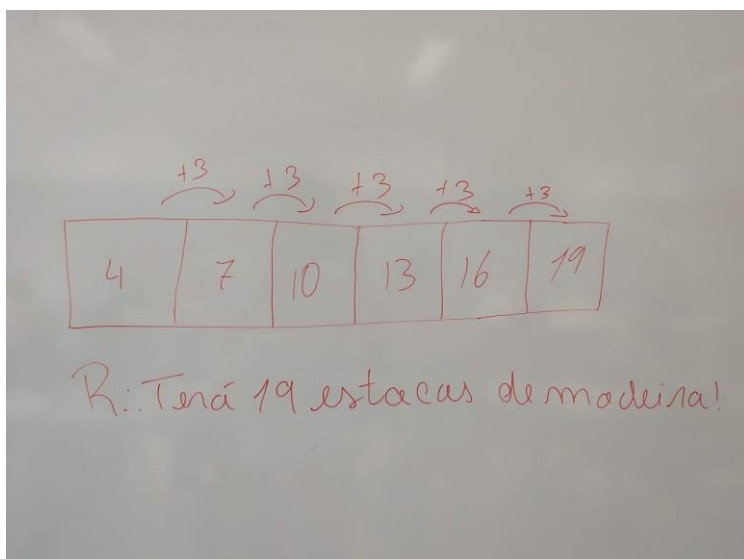 +3 +3 +3 +3 +3
4 7 10 13 16 19
R.: Terá 19 estacas de madeira!